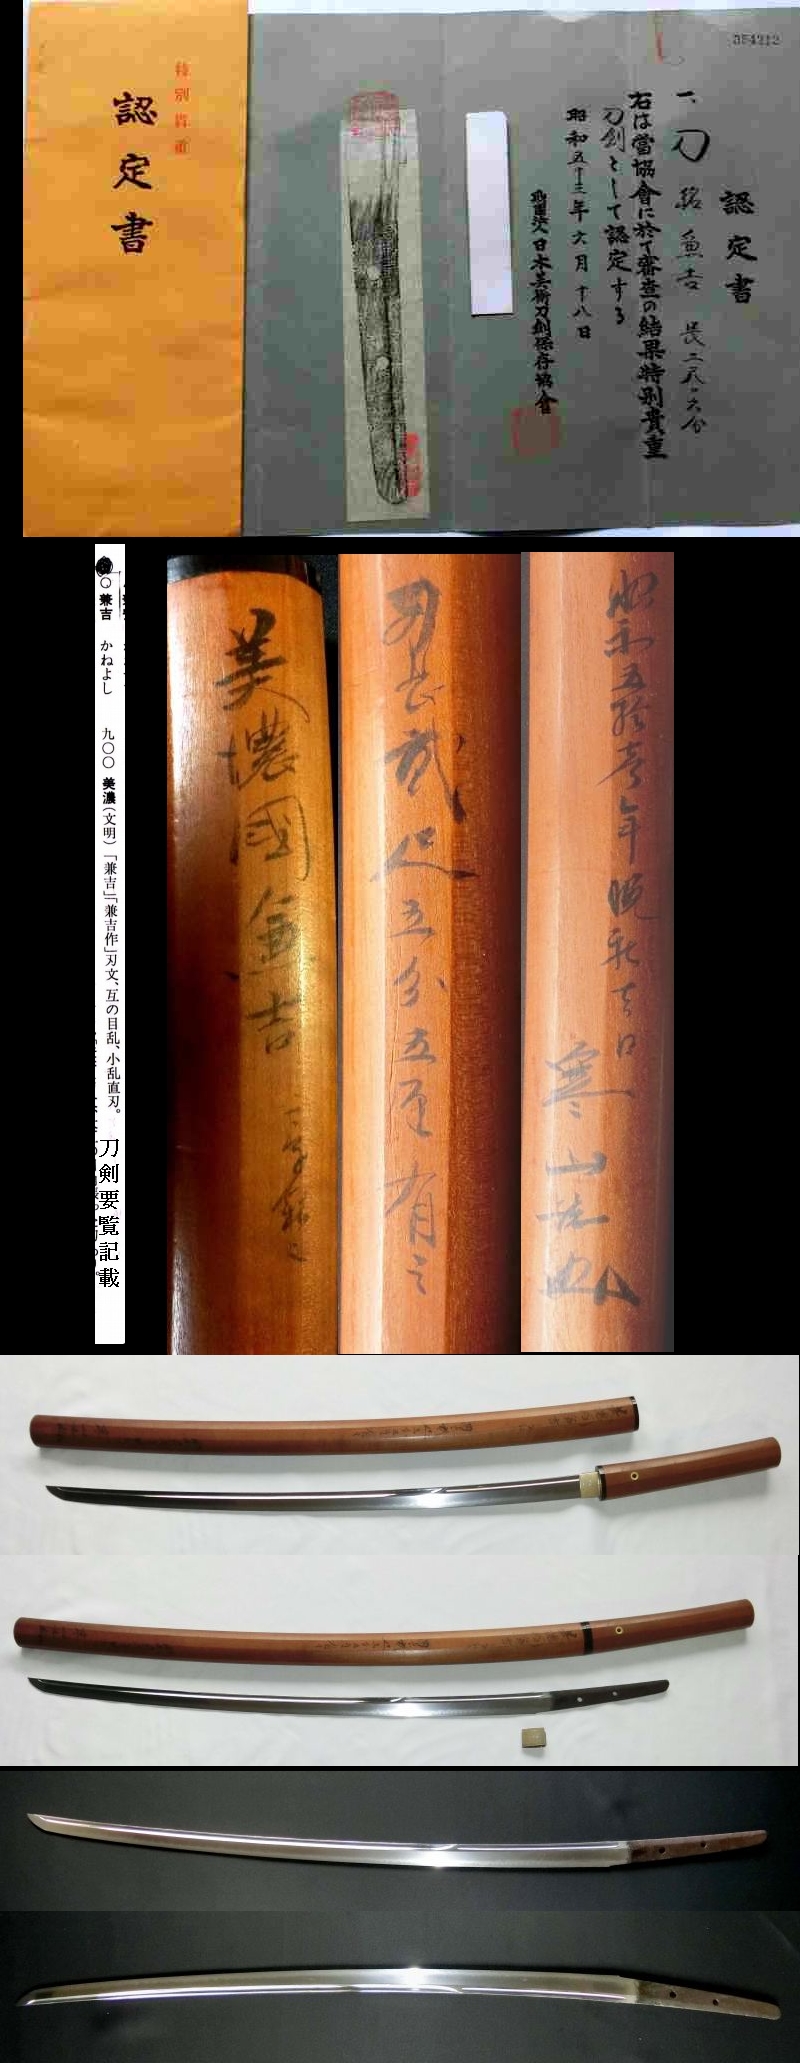 特別貴重
認定書
054212
認定書
一、刀 銘 兼吉 長二尺、六分
右は當協會に於て審査の結果特別貴重
刀剣として認定する
昭和五十三年六月十八日
財團法人日本美術刀剣保存協會
○兼吉 かねよし 九〇〇 美濃(文明)「兼吉」「兼吉作」刃文、互の目乱、小乱直刃。
刀剣要覧記載
美濃國兼吉
刃長貳尺五分五厘有之
昭和五拾壱年晩秋吉日
寒山誌